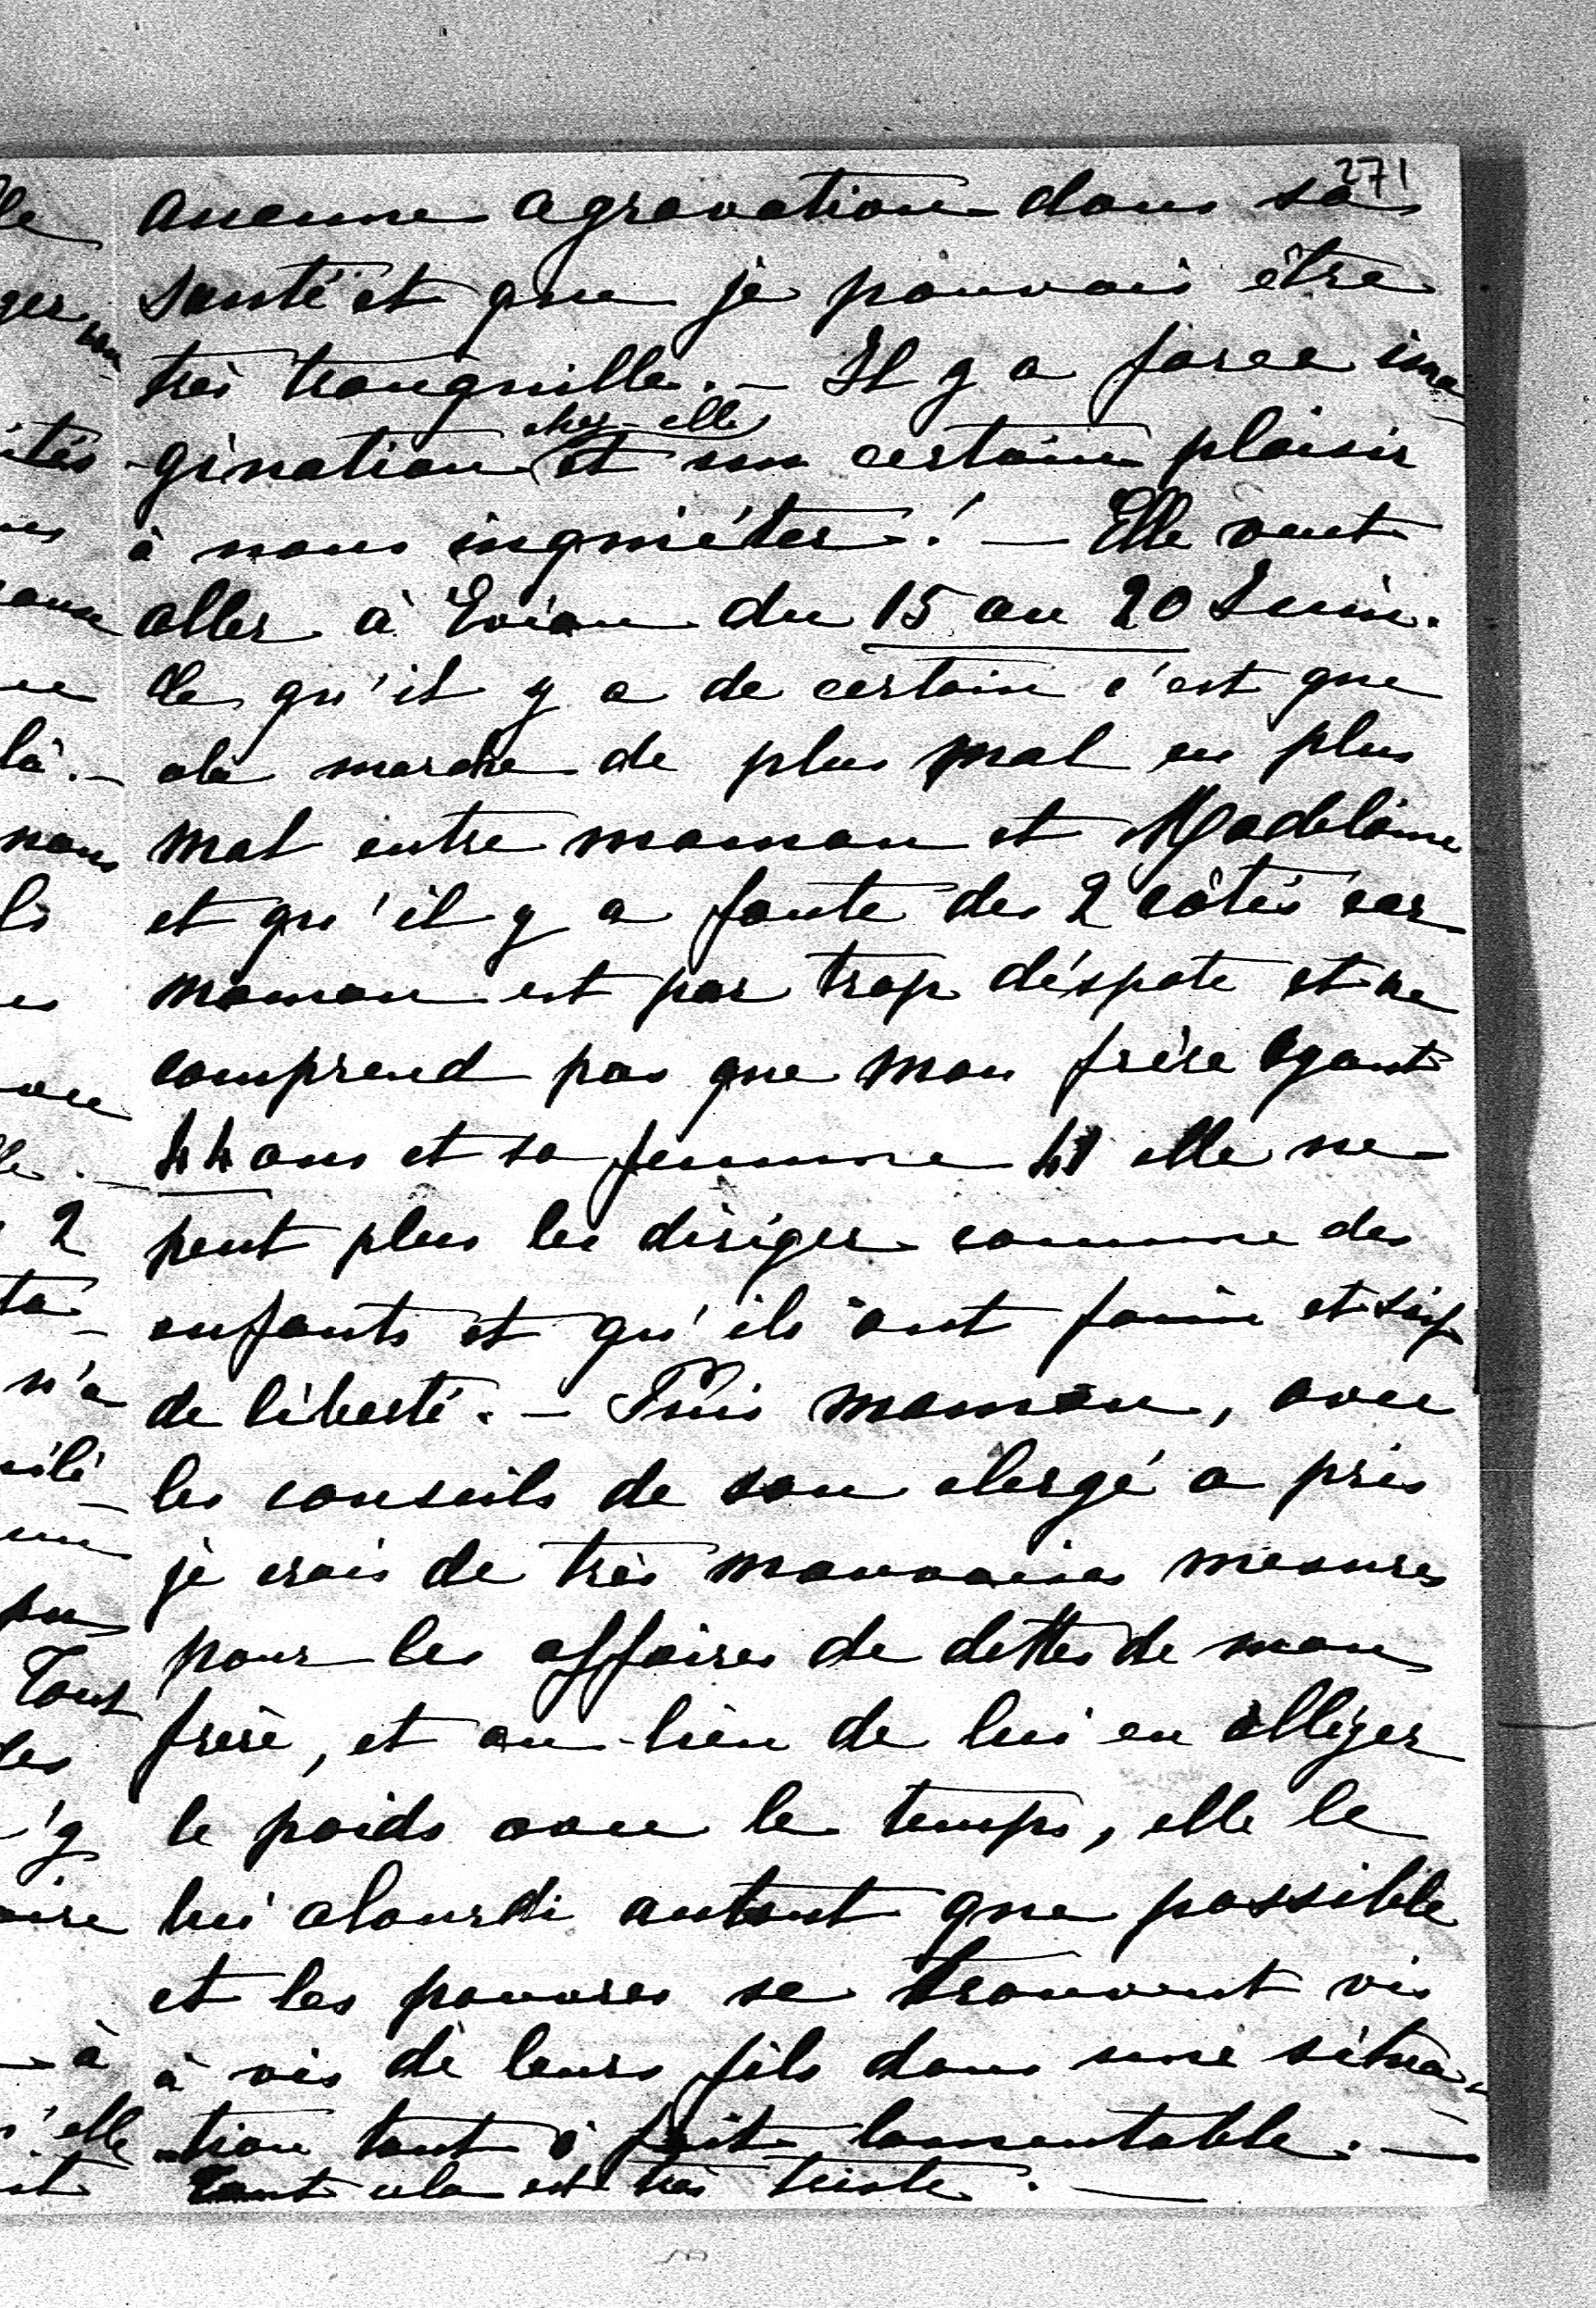 271
aucune agravation dans sa
santé et que je pouvais être
très tranquille. — Il y a force ima-
-gination chez-elle et un certain plaisir
à nous inquiéter ! — Elle veut
aller à Evian du 15 au 20 Juin.
Ce qu'il y a de certain c'est que
cela marche de plus mal en plus
mal entre maman et Madelaine
et qu'il y a faute des 2 côtés car
maman est par trop déspote et ne
comprend pas que mon frère ayant
44 ans et sa femme 41 elle ne
peut plus les diriger comme des
enfants et qu'ils ont faim et soif
de liberté. — Puis maman, avec
les conseils de son clergé a pris
je crois de très mauvaises mesures
pour les affaires de dettes de mon
frère, et au-lieu de lui en alléger
le poids avec le temps, elle le
lui alourdi autant que possible
et les pauvres se trouvent vis
à vis de leurs fils dans une situa-
-tion tout à fait lamentable. —
Tout cela est très triste. —